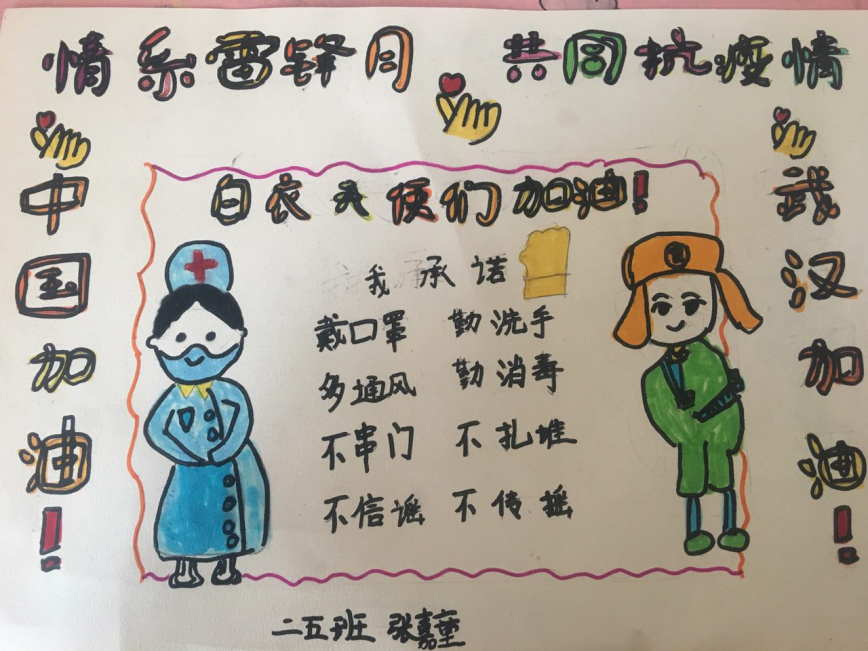 情系雷锋月 共同抗疫情
中国加油!
白衣天使们加油!
我承诺
戴口罩 勤洗手
多通风 勤消毒
不串门 不扎堆
不信谣 不传摇
武汉加油!
二五班 张嘉童